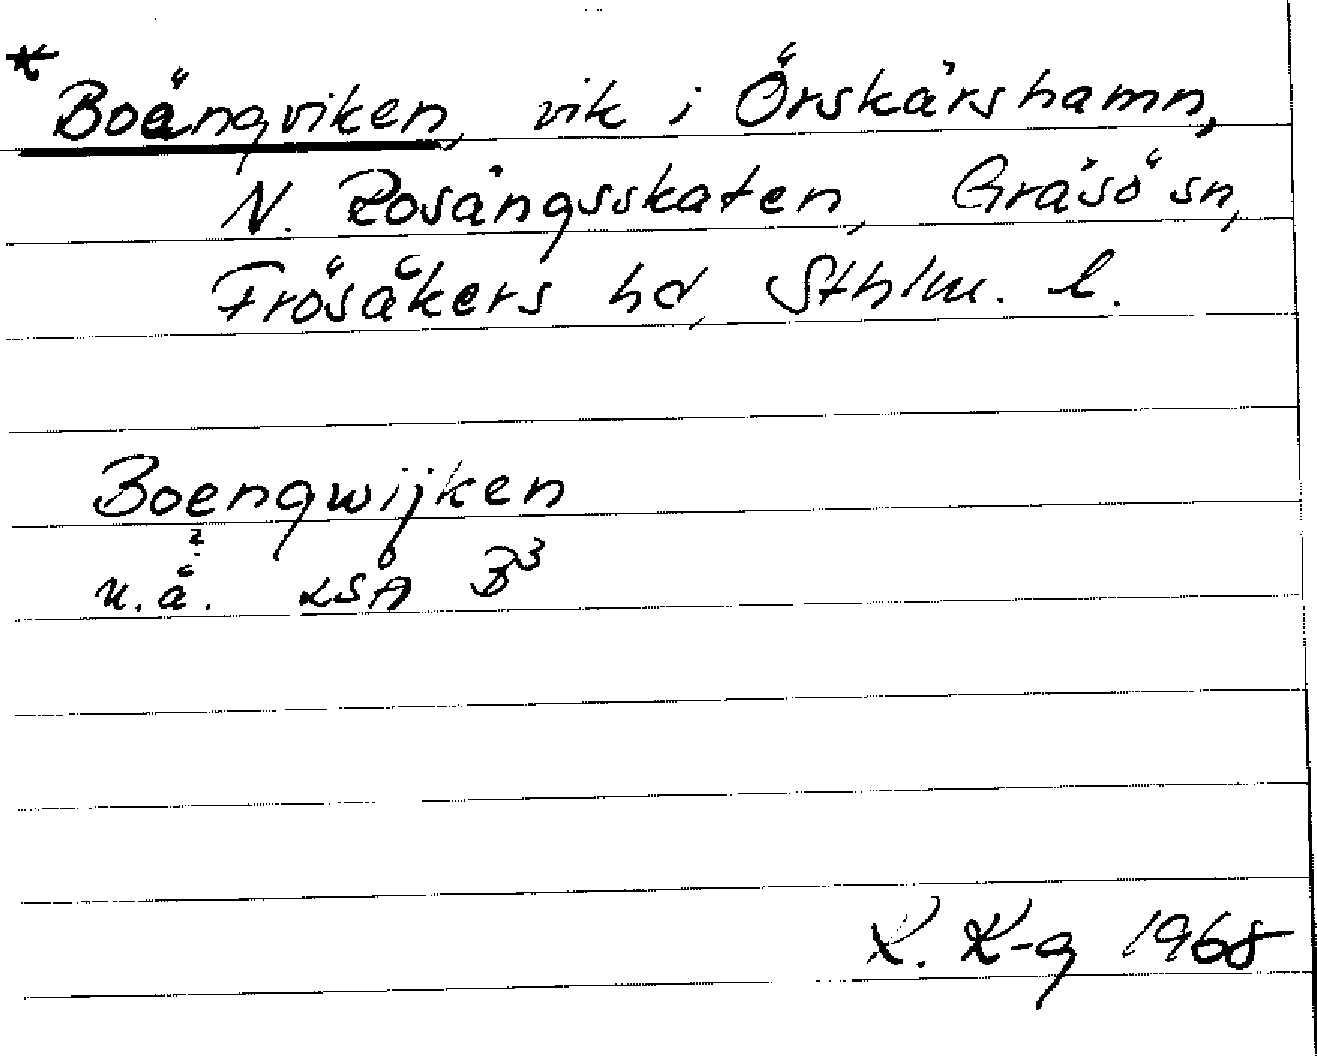 * Boängviken, vik i Örskärshamn,
N. Rosängsskaten, Gräsö sn,
Frösåkers hd, Sthlm. l.
Boengwijken
u.å. LSA B3
K. K-g 1968